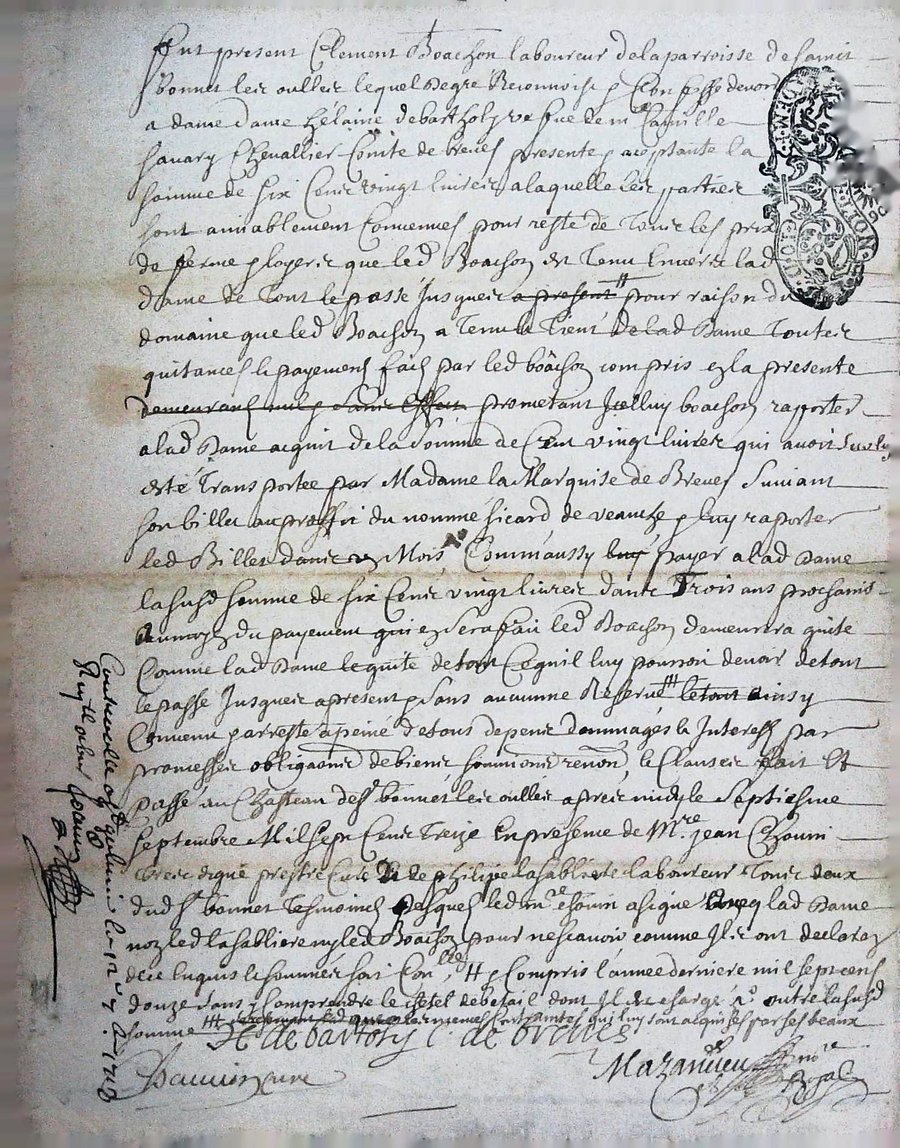 fut present Clement Boachon laboureur de la parroisse de sainct
bonnet les oulles lequel de gre Reconnoist & Confesse devoir
a dame dame helaine de bartholy vefue de mre Camille
savary Chevallier Comte de breves presente & aceptante la
somme de six Cens vingt livres a laquelle les parties
sont amiablement Convenues pour reste de Tous les prix
de ferme & loyers que led Boachon est Tenu Envers lad
dame de Tout le passé Jusques a present # pour raison du
domaine que led Boachon a Tenu & Tient de lad Dame Toutes
quitances & payemens faits par led boachon compris en la presente
demeurans nuls & sans effect prometant Icelluy boachon raporter
a lad Dame acquit de la Somme de Cent vingt livres qui avoit
esté Transportee par Madame la Marquise de Breves Suivant
son billet au proffit du nommé sicard de veauche & luy raporter
led Billet dans un Mois, Comm'aussy payer a lad Dame
la susd somme de six Cens vingt livres dans Trois ans prochains
au moyen du payement qui en sera fait led Boachon demeurera quite
Comme lad Dame le quite de tout Ce qu'il luy pourroit devoir de tout
le passé Jusques a present & sans aucunne Reserve ### le tout ainsy
Convenu & arresté a peine de tous depens dommages & Interests par
promesses obligaons de biens soumions renons & Clauses fait Et
passé au Chasteau de St bonnet les oulles apres midy le septiesme
septembre Mil sept Cens Treize En presense de Mre jean
prestre Curé & de philipe lasabliere laboureur Tous deux
dud St bonnet Tesmoins desquels led mre a signé aveq lad Dame
non led lasabliere ny led Boachon pour ne scavoir comme Ils ont declaré
de ce Enquis & sommés soit Con[lle] # & Compris l'année derniere mil sept cens
douze sans y comprendre le chetel de betail dont Il est chargé outre la susd
somme ### par ses beaux
H de bartoly C de breves
Mazandieu nore Royal
curé